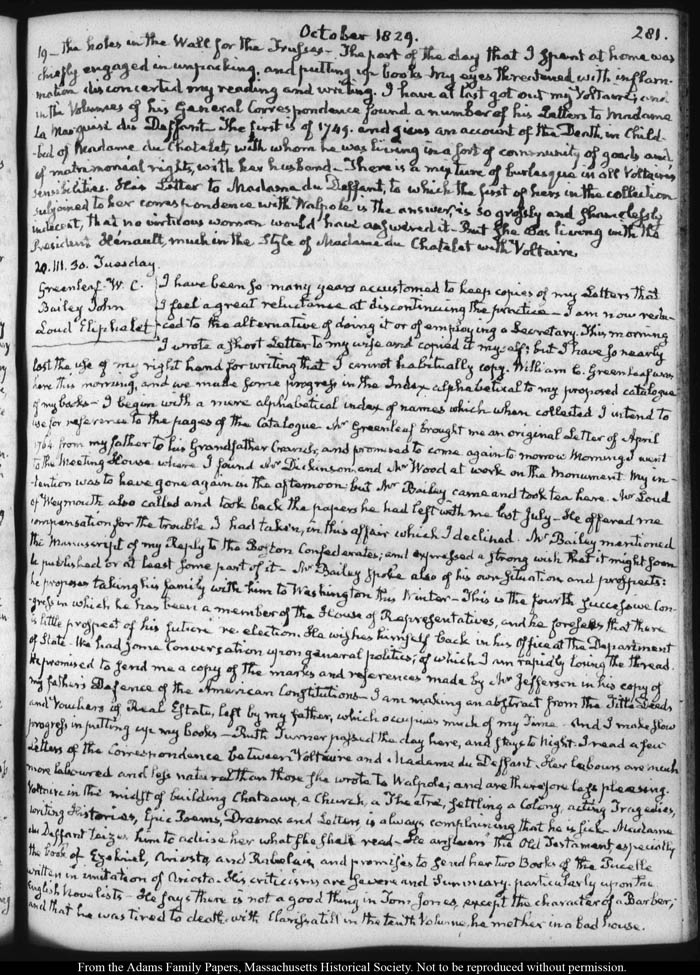 October 1829. 281.
19 – the holes in the Wall for the Trusses – The part of the day that I spent at home was
chiefly engaged in unpacking, and putting up books. My eyes threatened with inflam-
mation disconcerted my reading and writing. I have at last got out my Voltaire; and
in the Volumes of his General Correspondence found a number of his Letters to Madame
La Marquise du Deffant. The first is of 1749. and gives an account of the Death, in Child-
bed of Madame du Chatelet, with whom he was living in a sort of community of goods and
of matrimonial rights, with her husband – There is a mixture of burlesque in all Voltaire's
sensibilities. His Letter to Madame du Deffant, to which the first of hers in the collection
subjoined to her correspondence with Walpole is the answer, is so grossly and shamelessly
indecent, that no virtuous woman would have answered it – But she was living with the
President Hénault, much in the Style of Madame du Chatelet with Voltaire.
20. III. 30. Tuesday.
Greenleaf. W. C.
Bailey John
Loud Eliphalet
I have been so many years accustomed to keep copies of my Letters that
I feel a great reluctance at discontinuing the practice – I am now redu-
ced to the alternative of doing it or of employing a Secretary. This morning
I wrote a short Letter to my wife and copied it myself; but I have so nearly
lost the use of my right hand for writing that I cannot habitually copy. William C. Greenleaf was
here this morning, and we made some progress in the Index alphabetical to my proposed catalogue
of my books – I begin with a mere alphabetical index of names which when collected I intend to
use for reference to the pages of the Catalogue. Mr Greenleaf brought me an original Letter of April
1764 from my father to his Grandfather Cranch; and promised to come again to morrow Morning. I went
to the Meeting House where I found Mr Dickinson, and Mr Wood at work on the Monument My in-
tention was to have gone again in the afternoon but Mr Bailey came and took tea here. Mr Loud
of Weymouth also called and took back the papers he had left with me last July – He offered me
compensation for the trouble I had taken, in this affair which I declined. Mr Bailey mentioned
the Manuscript of my Reply to the Boston Confederates; and expressed a strong wish that it might soon
be published or at least some part of it – Mr Bailey spoke also of his own situation and prospects:
he proposes taking his family with him to Washington this Winter – This is the fourth successive Con-
gress in which he has been a member of the House of Representatives, and he foresees that there
is little prospect of his future re-election. He wishes himself back in his Office at the Department
of State. We had some conversation upon general politics; of which I am rapidly losing the thread.
He promised to send me a copy of the marks and references made by Mr Jefferson in his copy of
my father's Defence of the American Constitutions – I am making an abstract from the Title Deeds
and Vouchers of Real Estate, left by my father, which occupies much of my Time – And I make slow
progress in putting up my books – Ruth Turner passed the day here, and stays to Night. I read a few
Letters of the Correspondence between Voltaire and Madame du Deffant. Her labours are much
more laboured and less natural than those she wrote to Walpole; and are therefore less pleasing.
Voltaire in the midst of building Chateaux, a Church, a Theatre, settling a Colony, acting Tragedies,
writing Histories, Epic Poems, Dramas and Letters is always complaining that he is sick – Madame
du Deffant teizes him to advise her what she shall read – He answers the Old Testament especially
the book of Ezekiel, Ariosto, and Rabelais, and promises to send her two Books of the Pucelle
written in imitation of Ariosto. His criticisms are severe and summary. particularly upon the
English Novelists – He says there is not a good thing in Tom Jones, except the character of a Barber;
and that he was tired to death with Clarissa till in the tenth Volume, he mother in a bad house.
From the Adams Family Papers, Massachusetts Historical Society. Not to be reproduced without permission.